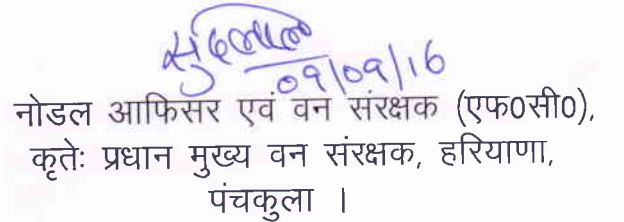 09/09/16
नोडल आफिसर एवं वन संरक्षक (एफ0सी0),
कृतेः प्रधान मुख्य वन संरक्षक, हरियाणा,
पंचकुला ।